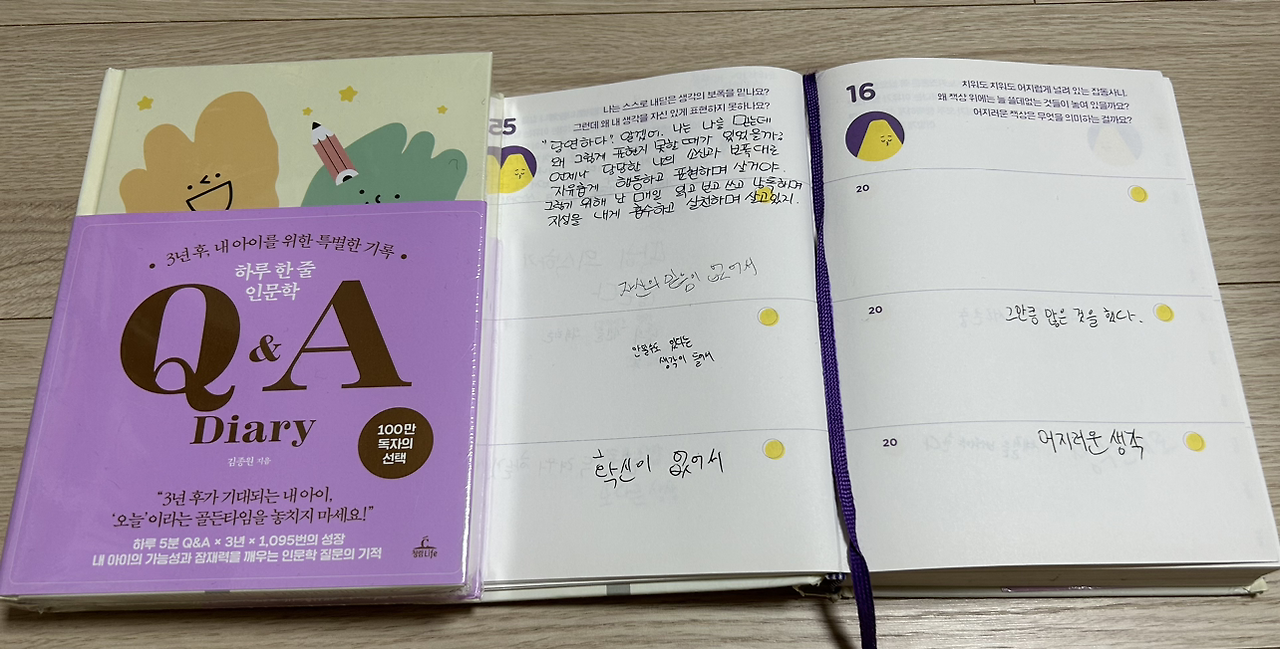 3년 후, 내 아이를 위한 특별한 기록
하루 한 줄
인문학
Q&A
Diary
김종원 지음
100만
독자의
선택
“3년 후가 기대되는 내 아이,
‘오늘’이라는 골든타임을 놓치지 마세요!”
하루 5분 Q&A × 3년 × 1,095번의 성장
내 아이의 가능성과 잠재력을 깨우는 인문학 질문의 기적
청림Life
25
나는 스스로 내딛은 생각의 보폭을 믿나요?
그런데 왜 내 생각을 자신 있게 표현하지 못하나요?
"당연하다". 나는 나를 믿는데
왜 그렇게 표현치 못할 때가 있었을까?
언제나 당당한 나의 소신과 보폭대로
자유롭게 행동하고 표현하며 살거야.
그렇기 위해 난 매일 읽고 보고 쓰고 낭독하며
지성을 내게 흡수하고 실천하며 살고있지.
자신의 믿음이 없어서
안 될수도 있다는
생각이 들어서
확신이 없어서
16
치워도 치워도 어지럽게 널려 있는 잡동사니.
왜 책상 위에는 늘 쓸데없는 것들이 놓여 있을까요?
어지러운 책상은 무엇을 의미하는 걸까요?
20
20
그만큼 많은 것을 했다.
20
어지러운 생각